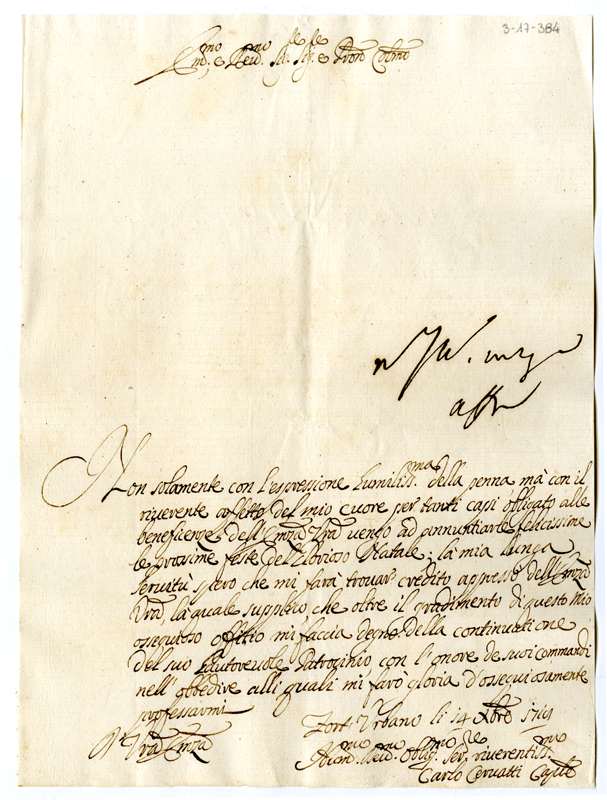 3-17-384
Em.mo e Rev.mo Sig.re Sig.re e Pron Colmo
Non solamente con l'espressione humiliss.ma della penna mà con il
riverente affetto del mio cuore per tanti capi obligato alle
beneficenze dell'Emza Vra vengo ad annuntiarle felicissime
le prossime feste del Glorioso Natale; la mia lunga
servitù spero che mi farà trovar credito appresso dell'Emza
Vra, la quale supplico che oltre il gradimento di questo mio
ossequioso offitio mi faccia degno della continuatione
del suo Autorevole Patrocinio con l'onore de suoi commandi
nell'obbedire alli quali mi farò gloria d'ossequiosamente
professarmi
Fort' Urbano li 14 Xbre
D. Vra Emza
Hum.mo Dev.mo Oblig.mo Ser.re riverentiss.mo
Carlo Cervatti